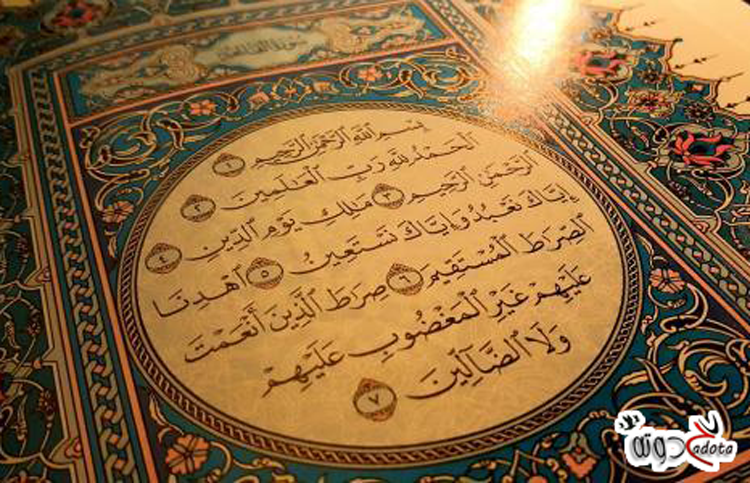 سورة الفاتحة
بِسْمِ ٱللَّهِ ٱلرَّحْمَٰنِ ٱلرَّحِيمِ ١
ٱلْحَمْدُ لِلَّهِ رَبِّ ٱلْعَٰلَمِينَ ٢
ٱلرَّحْمَٰنِ ٱلرَّحِيمِ ٣ مَٰلِكِ يَوْمِ ٱلدِّينِ ٤
إِيَّاكَ نَعْبُدُ وَإِيَّاكَ نَسْتَعِينُ ٥ ٱهْدِنَا
ٱلصِّرَٰطَ ٱلْمُسْتَقِيمَ ٦ صِرَٰطَ ٱلَّذِينَ أَنْعَمْتَ
عَلَيْهِمْ غَيْرِ ٱلْمَغْضُوبِ عَلَيْهِمْ
وَلَا ٱلضَّآلِّينَ ٧
adota